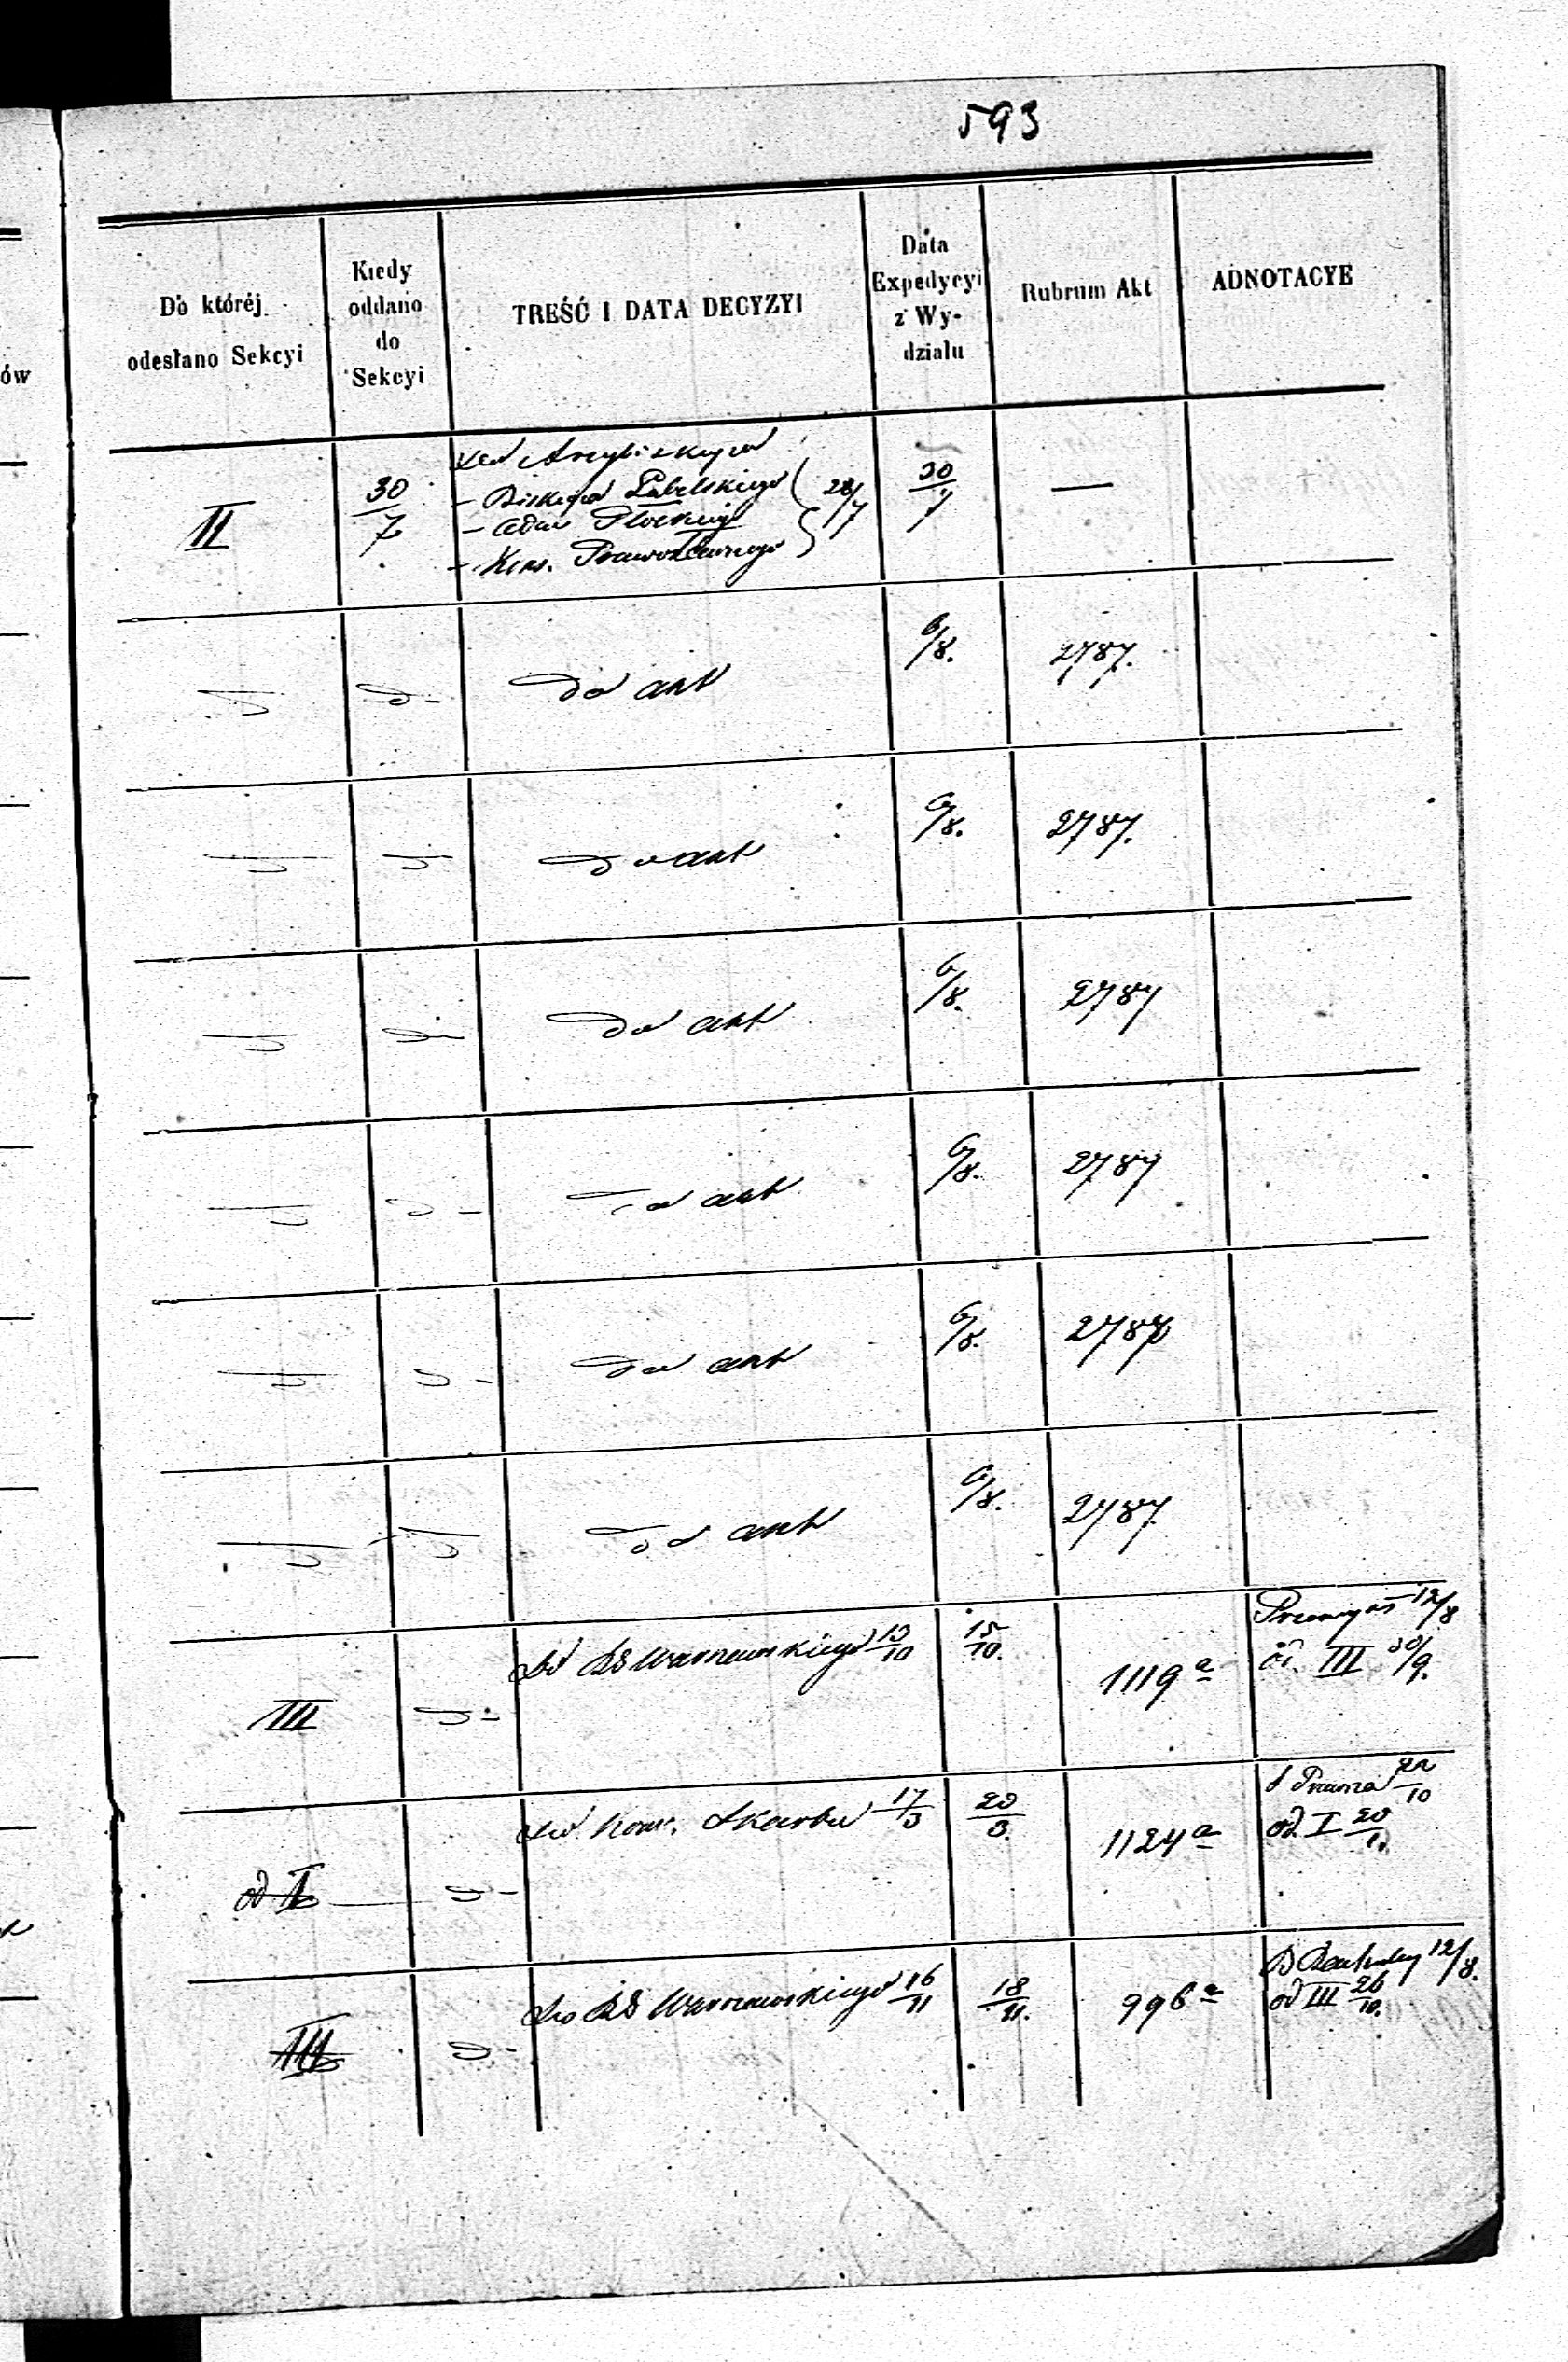 593
ów
Do któréj
odesłano Sekcyi
Kiedy
oddano
do
Sekcyi
TREŚĆ I DATA DECYZYI
Data
Expedycyi
z Wy-
działu
Rubrum Akt
ADNOTACYE
II
30/7
Do Arcybiskupa
- Biskupa Lubelskiego
- Adm Płockiego
- Kons. Prawosławnego
28/7
30/7
—
do akt
6/8.
2787.
do akt
6/8.
2787.
do akt
6/8.
2787
do akt
6/8.
2787
do akt
6/8.
2787
do akt
6/8.
2787
III
Do RG Warszawskiego 13/10
15/10.
1119 a
12/8
od III 30/9.
od I
Do Kom. Skarbu 17/3
20/3.
1124 a
22/10
od I 20/1.
III
Do RG Warszawskiego 16/11
18/11.
996 a
12/8.
od III 26/10.